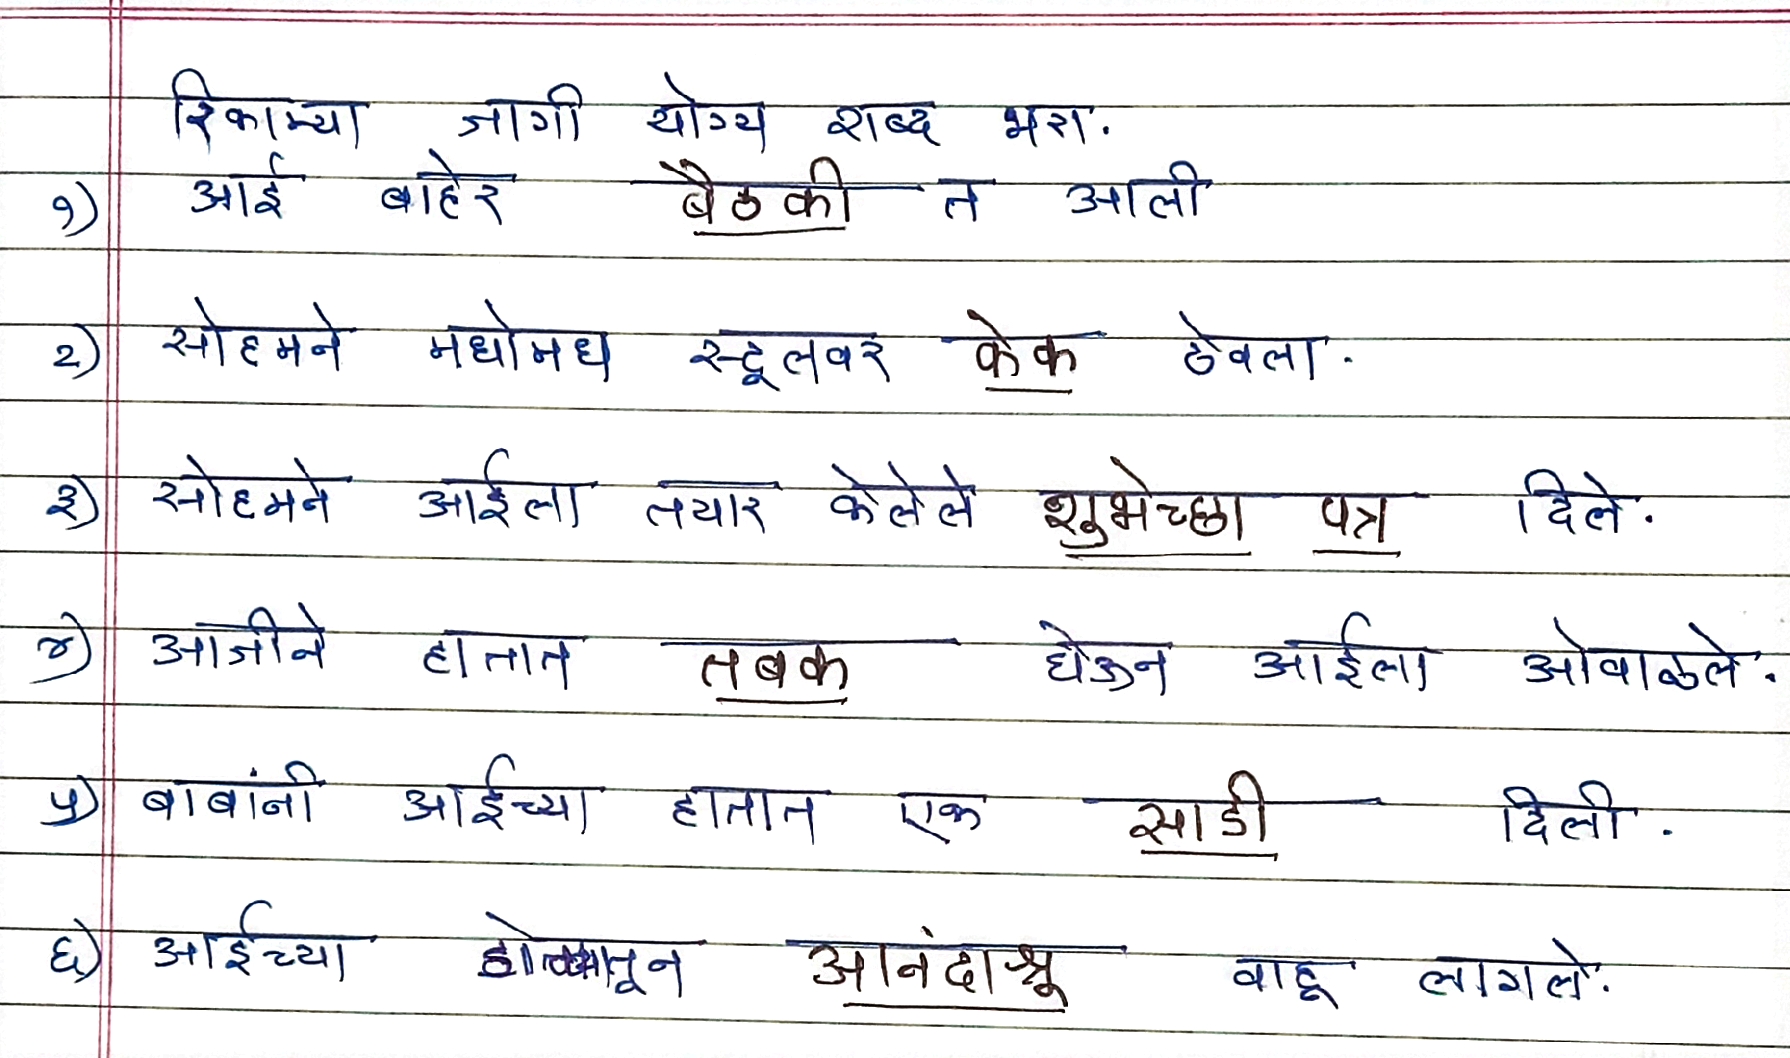 रिकाम्या जागी योग्य शब्द भरा.
१) आई बाहेर बैठकी त आली
२) सोहमने मधोमध स्टूलवर केक ठेवला.
३) सोहमने आईला तयार केलेले शुभेच्छा पत्र दिले.
४) आजीने हातात तबक घेऊन आईला ओवाळले.
५) बाबांनी आईच्या हातात एक साडी दिली.
६) आईच्या आनंदाश्रू वाहू लागले.